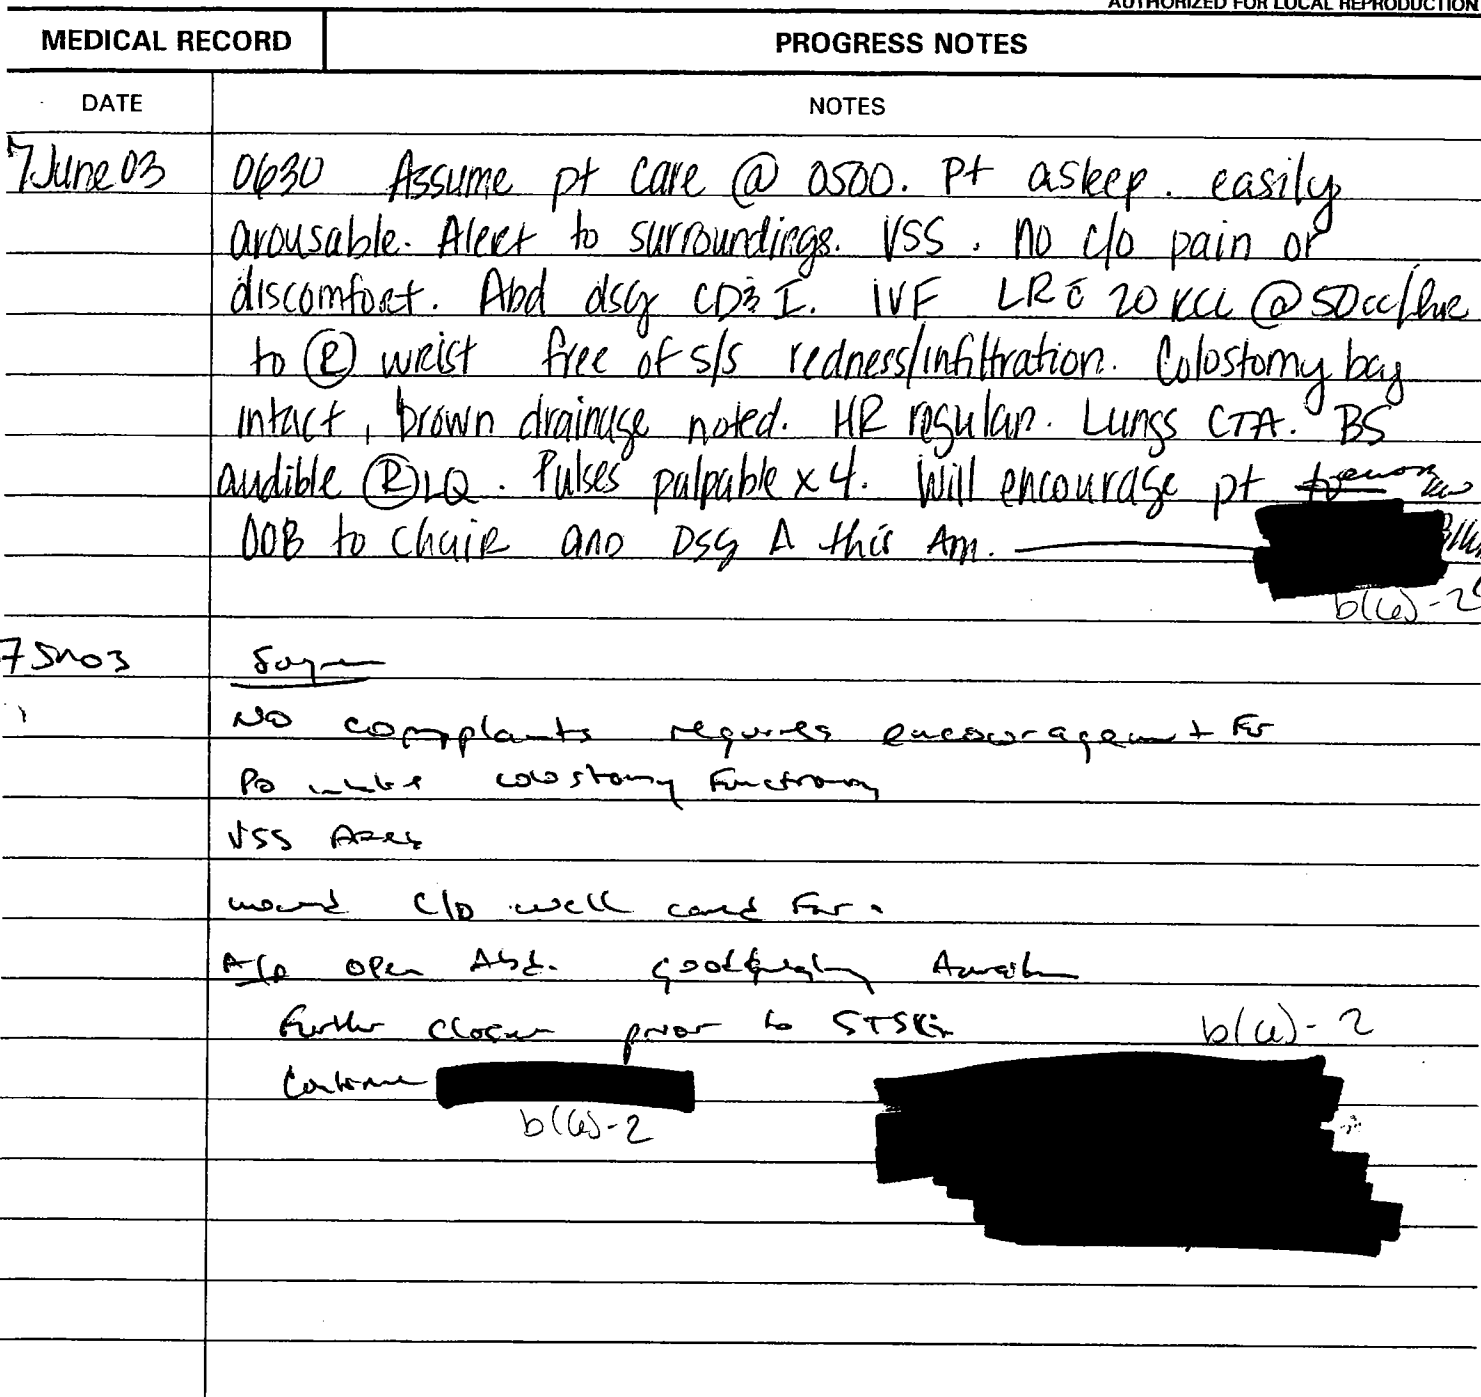 AUTHORIZED FOR LOCAL REPRODUCTION
MEDICAL RECORD PROGRESS NOTES
DATE NOTES
7 June 03 0630 Assume pt care @ 0500. Pt asleep. easily
arousable. Alert to surroundings. VSS. No c/o pain or
discomfort. Abd dsg CD&I. IVF LR c̄ 20 KCL @ 50cc/hr
to Ⓡ wrist free of s/s redness/infiltration. Colostomy bag
intact, brown drainage noted. HR regular. Lungs CTA. BS
audible ⓇLQ. Pulses palpable x 4. Will encourage pt
OOB to chair and Dsg Δ this Am.
b(6)-2
7 Jn 03
No complaints requires encouragement For
Po intake colostomy Functioning
VSS
wound c/o well cared For.
A/P open Abd.
Further closure prior to STSG
b(6)-2
Continue
b(6)-2